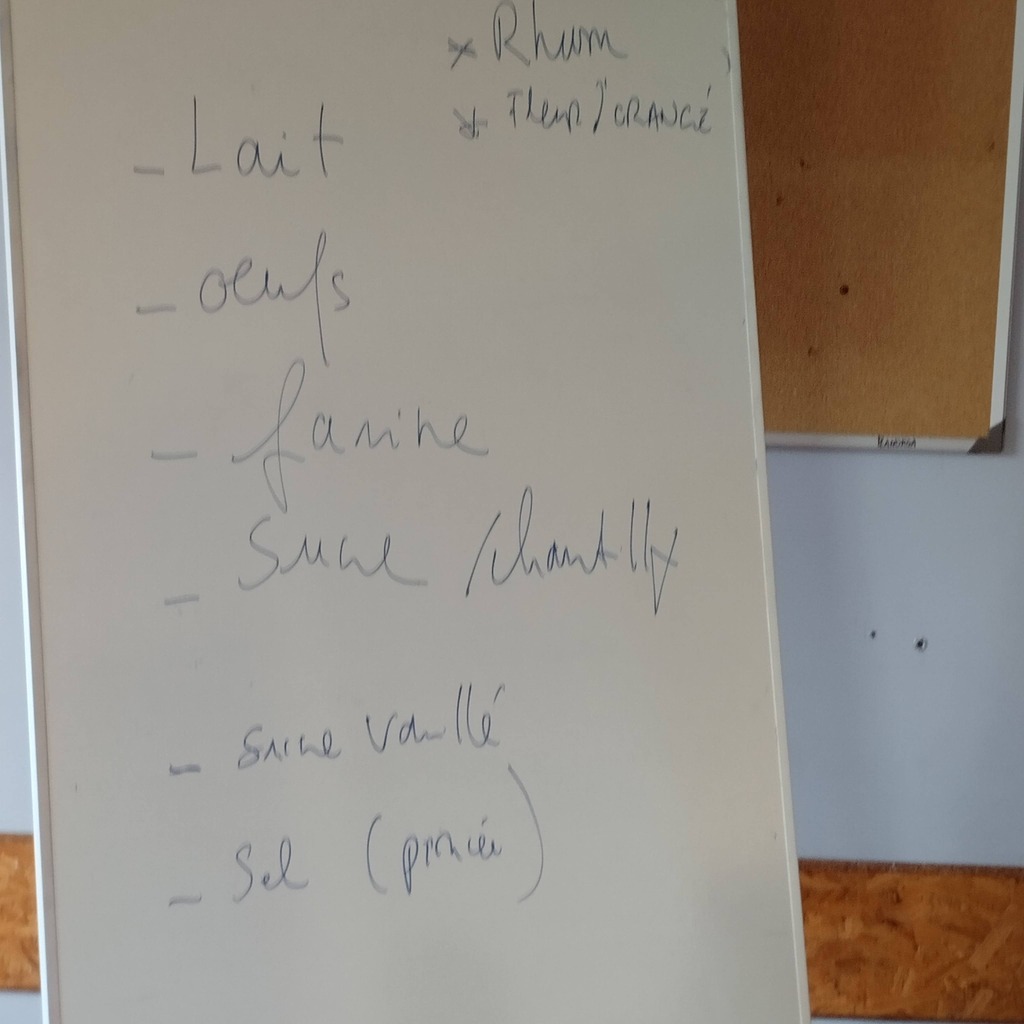 * Rhum
* Fleur d'ORANGÉ
- Lait
- oeufs
- farine
- Sucre / chantilly
- sucre vanillé
- Sel (pincée)